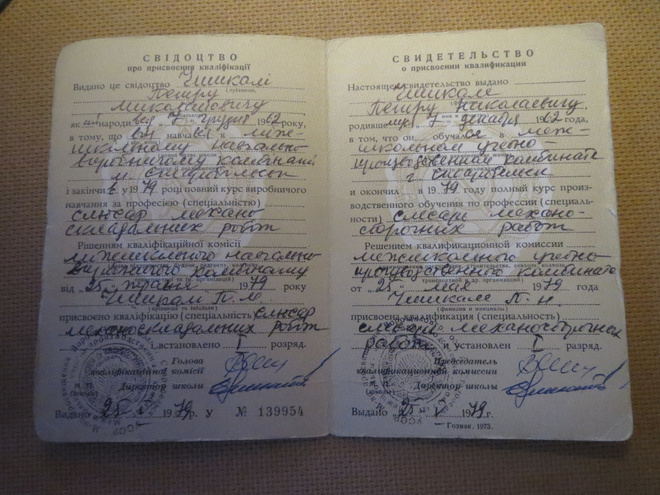 СВІДОЦТВО
про присвоєння кваліфікації
Видано це свідоцтво Чишкалі
Петру
Миколайовичу
7 грудня 1962 року,
в тому, що він навчався в між-
шкільному навчально-
виробничому комбінаті
м.
і закінчив у 1979 році повний курс виробничого
навчання за професією (спеціальністю)
слюсар механо
складальних робіт
Рішенням кваліфікаційної комісії
міжшкільного навчально
комбінату
від 25 травня 1979 року
П. М.
присвоєно кваліфікація (спеціальність) слюсар
механоскладальних робіт
і встановлено I розряд.
Голова
кваліфікаційної комісії
М. П.
Директор школи
Видано 25 V 1979 р. У № 139954
СВИДЕТЕЛЬСТВО
о присвоении квалификации
Настоящее свидетельство выдано
Чишкале
Петру Николаевичу
7 декабря 1962 года,
в том, что он обучался в меж-
школьном учебно-
производственном комбинате
г.
и окончил в 1979 году полный курс произ-
водственного обучения по профессии (специаль-
ности) слесарь механо-
сборочных работ
Решением квалификационной комиссии
межшкольного учебно-
производственного комбината
от 25 мая 1979 года
Чишкале П. Н.
(фамилия и инициалы)
присвоена квалификация (специальность)
слесарь механосборочных
работ и установлен I разряд.
Председатель
квалификационной комиссии
М. П.
Директор школы
Выдано 25 V 1979 г.
Гознак. 1973.